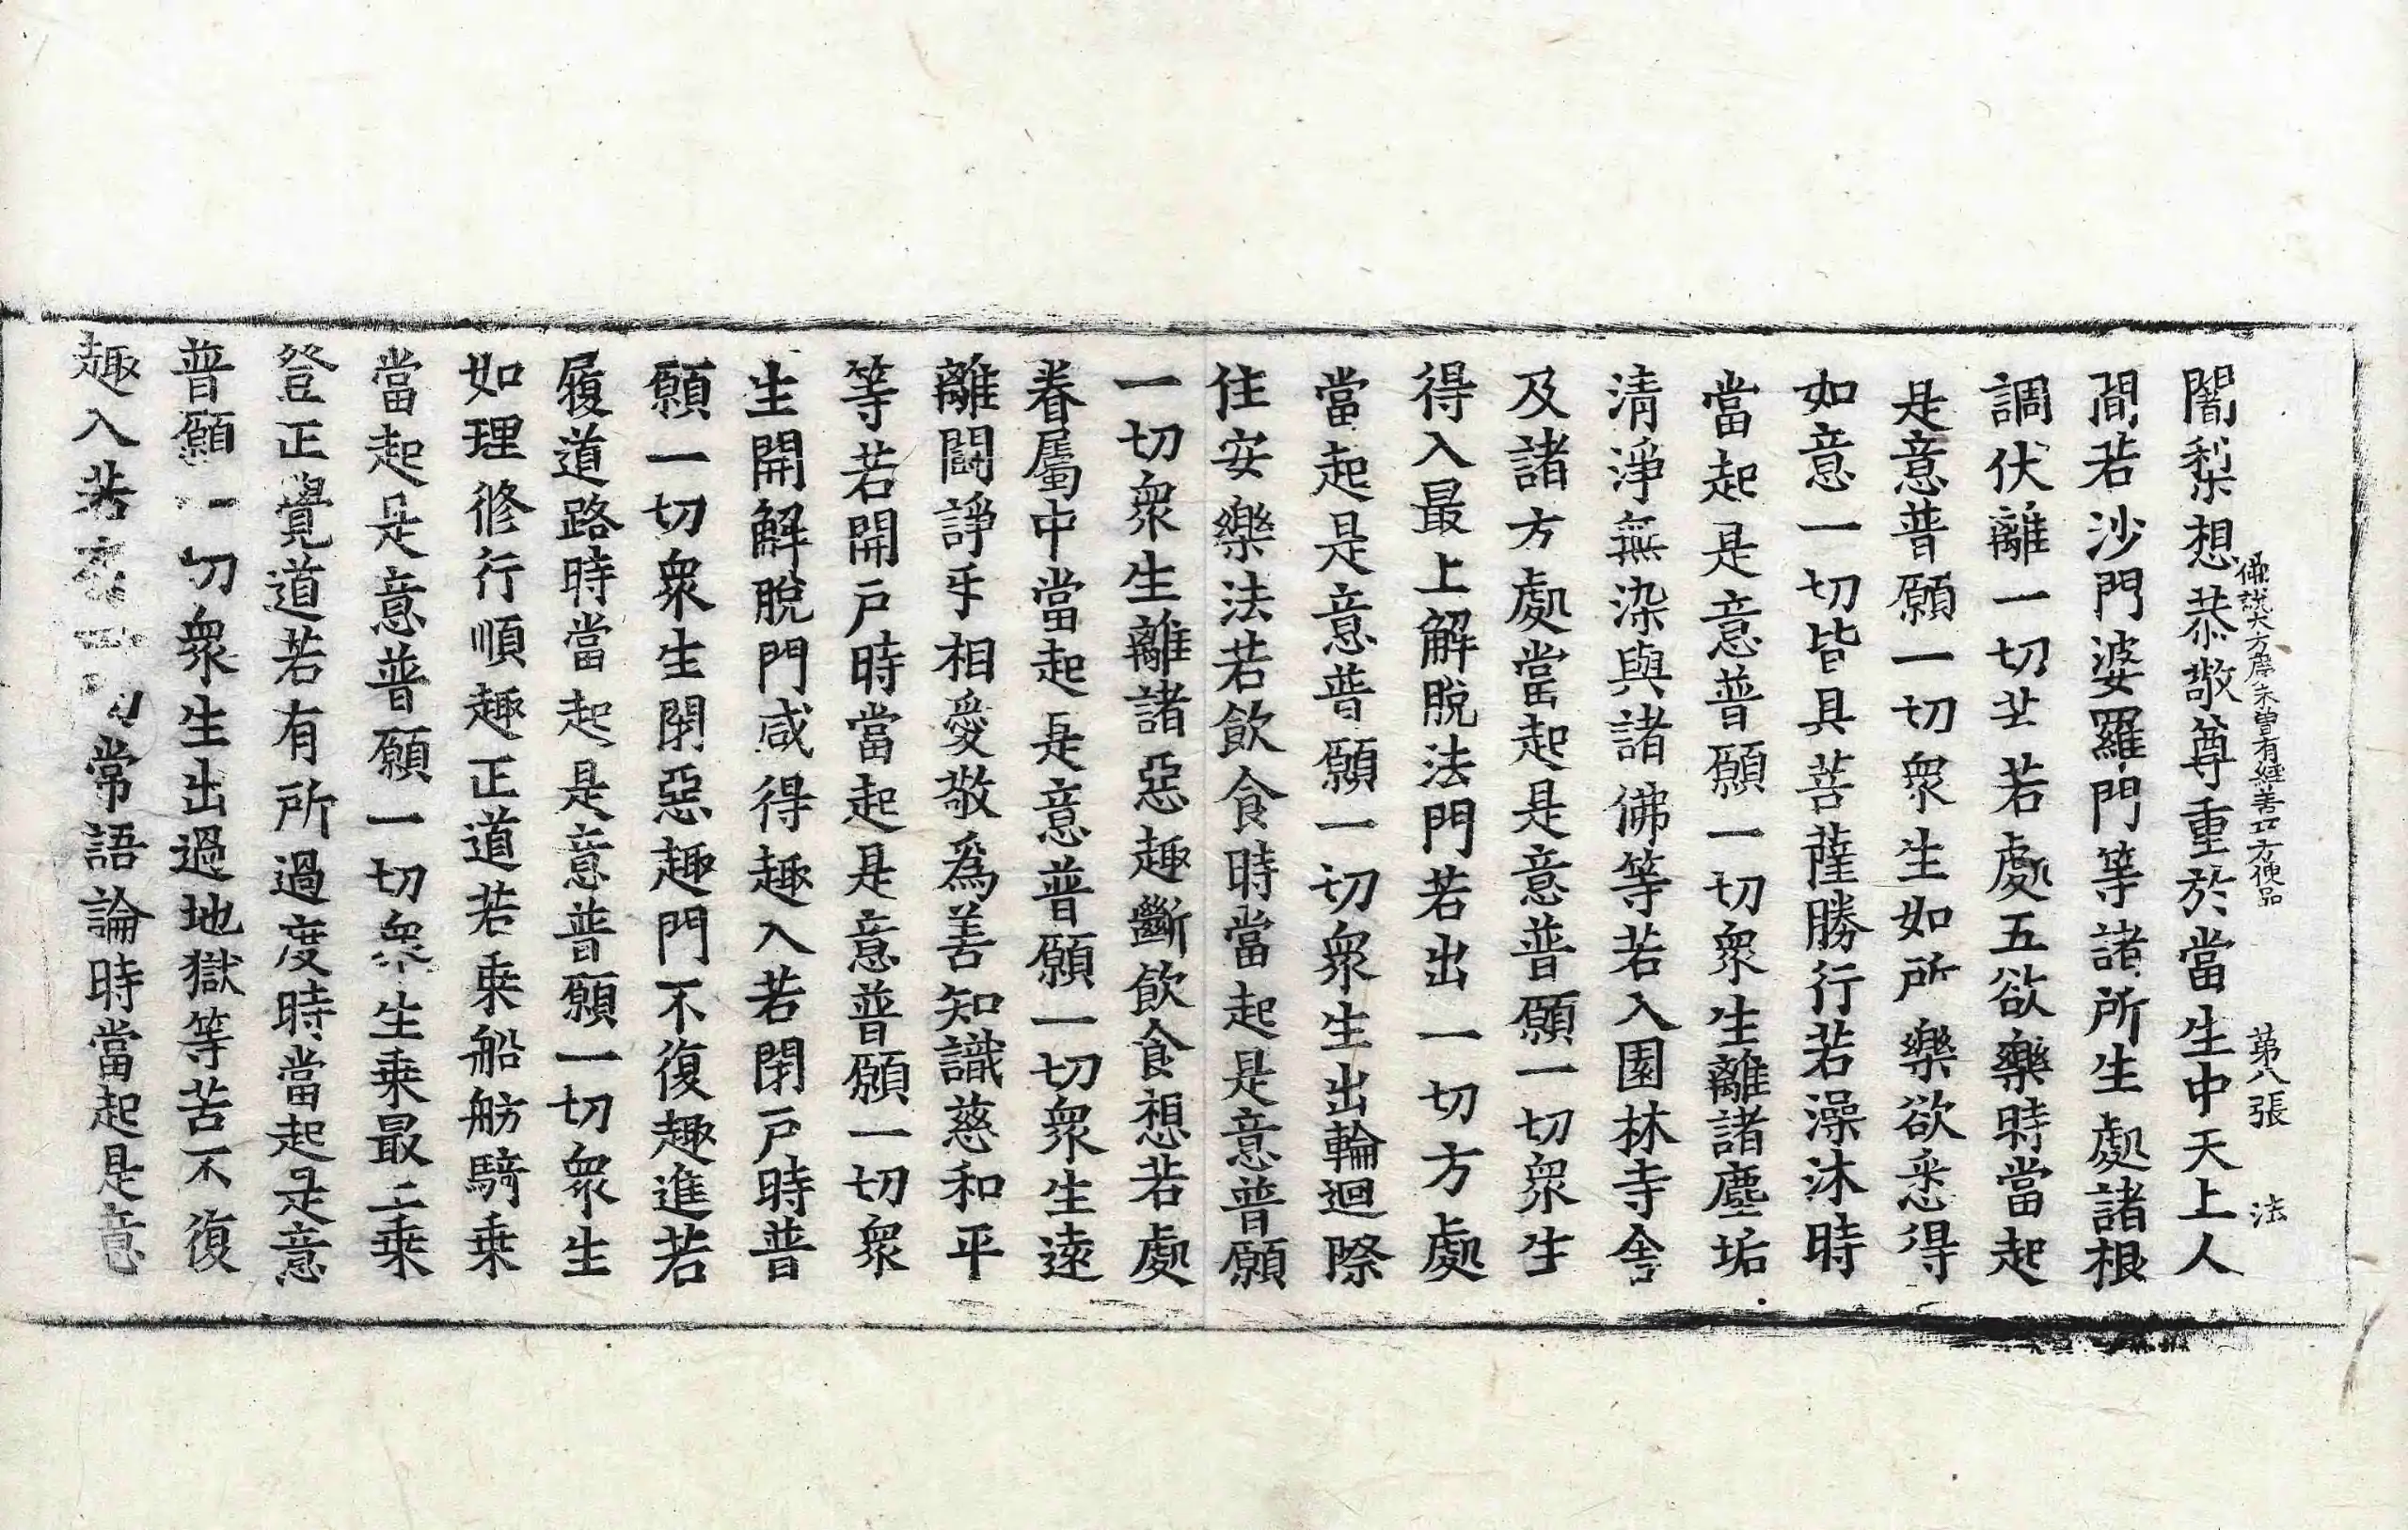 佛說大方廣未曾有經善巧方便品 苐八張 法
闍梨想恭敬尊重於當生中天上人
間若沙門婆羅門等諸所生處諸根
調伏離一切㘴若處五欲樂時當起
是意普願一切衆生如所樂欲悉得
如意一切皆具菩薩勝行若澡沐時
當起是意普願一切衆生離諸塵垢
清淨無染與諸佛等若入園林寺舎
及諸方處當起是意普願一切衆生
得入最上解脫法門若出一切方處
當起是意普願一切衆生出輪迴際
住安樂法若飲食時當起是意普願
一切衆生離諸惡趣斷飲食想若處
眷屬中當起是意普願一切衆生遠
離鬪諍㸦相愛敬爲善知識慈和平
等若開戶時當起是意普願一切衆
生開解脫門咸得趣入若閉戶時普
願一切衆生閉惡趣門不復趣進若
履道路時當起是意普願一切衆生
如理修行順趣正道若乗船舫騎乗
當起是意普願一切衆生乗最上乗
登正覺道若有所過度時當起是意
普願一切衆生出過地獄等苦不復
趣入若常語論時當起是意